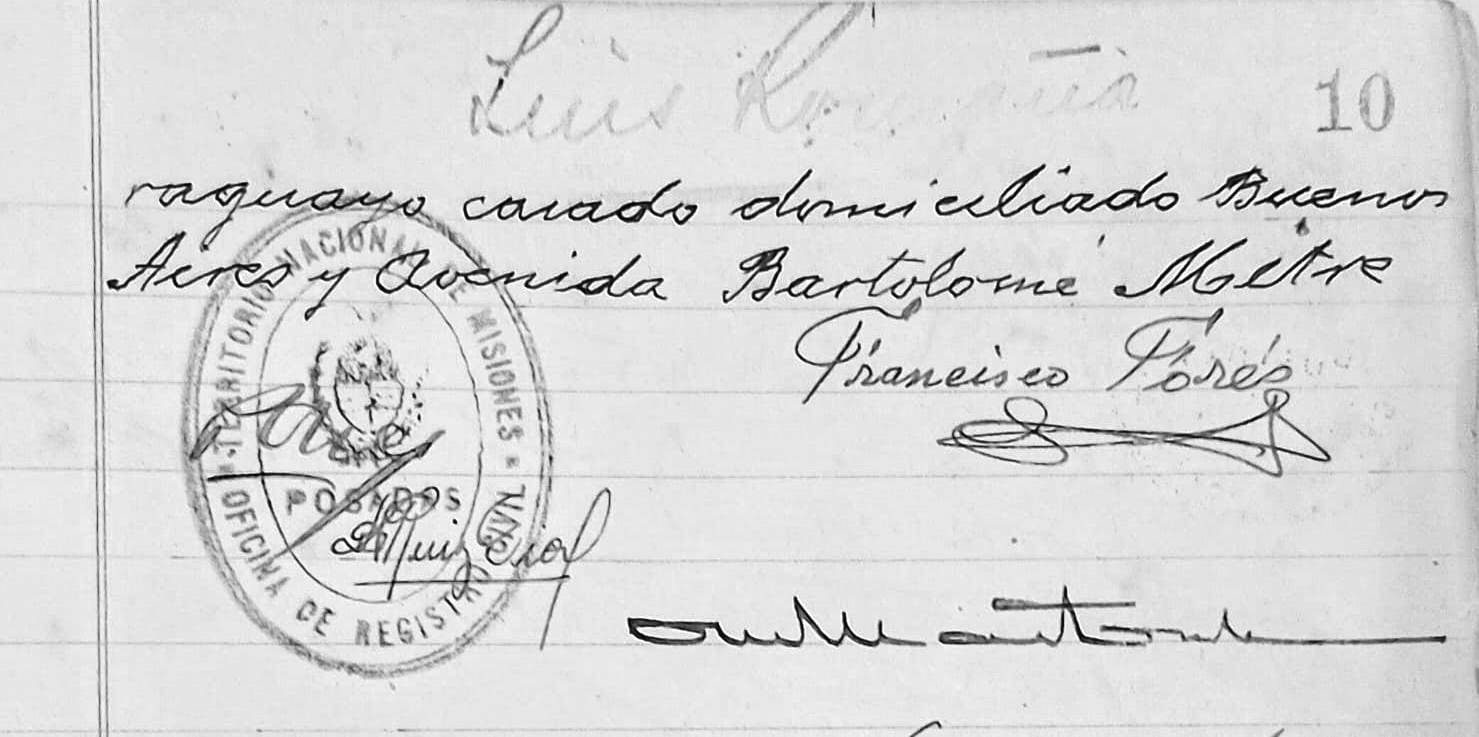 Luis Romaña
10
raguayo casado domiciliado Buenos
Aires y Avenida Bartolomé Mitre
Francisco Forés
TERRITORIO NACIONAL DE MISIONES
POSADAS
OFICINA DE REGISTRO CIVIL